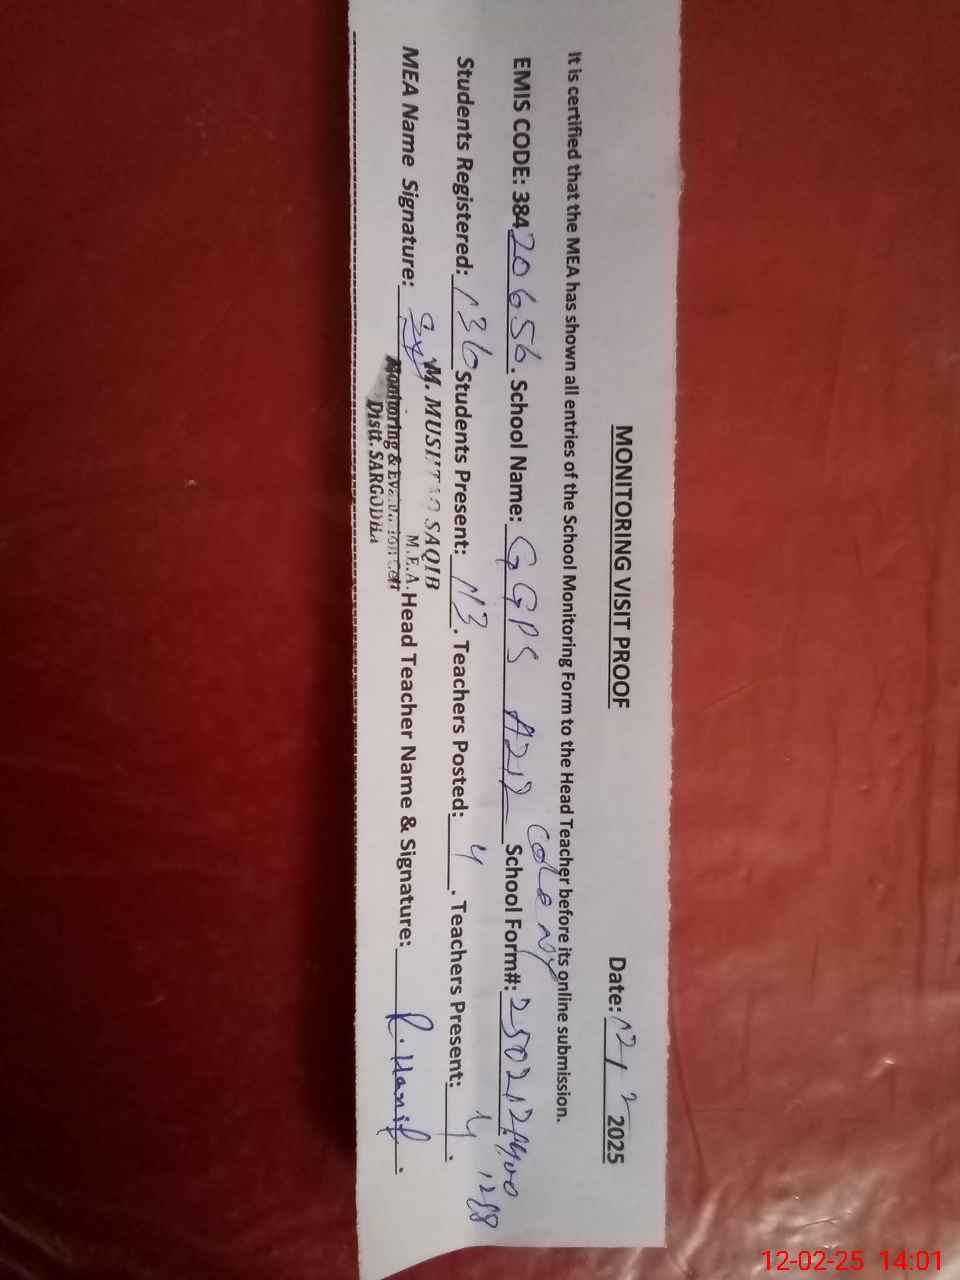 MONITORING VISIT PROOF
Date: 12/2 2025
It is certified that the MEA has shown all entries of the School Monitoring Form to the Head Teacher before its online submission.
EMIS CODE: 38420656. School Name: GGPS Aziz Colony School Form#: 25021214001288
Students Registered: 136 Students Present: 113. Teachers Posted: 4. Teachers Present: 4.
MEA Name Signature: Head Teacher Name & Signature: R. Hanif.
M. MUSHTAQ SAQIB
M.E.A.
Monitoring & Evaluation Cell
Distt. SARGODHA
12-02-25 14:01